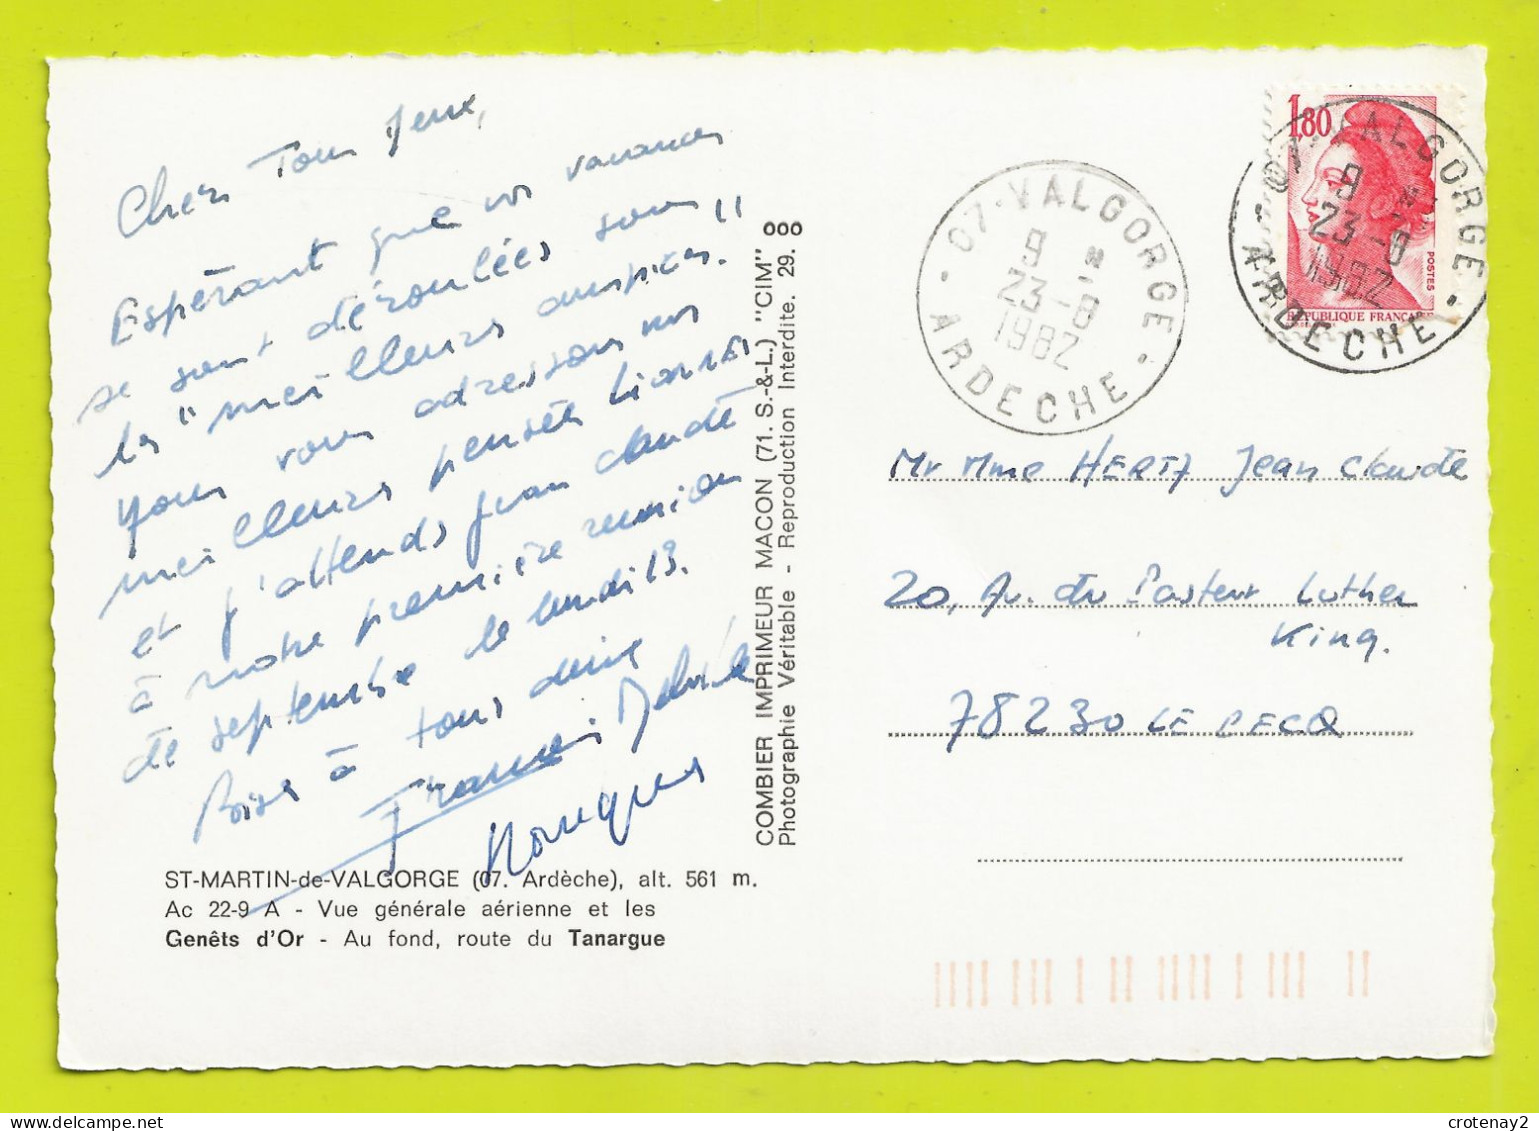 Chers Tous deux,
Espérant que vos vacances
se sont déroulées sous
les "meilleurs auspices."
Nous vous adressons nos
meilleures pensées
et j'attends Jean Claude
à notre première réunion
de septembre le lundi 13.
Bises à tous deux
Francis
Monique
ST-MARTIN-de-VALGORGE (07. Ardèche), alt. 561 m.
Ac 22-9 A - Vue générale aérienne et les
Genêts d'Or - Au fond, route du Tanargue
COMBIER IMPRIMEUR MACON (71. S.-&-L.) "CIM"
Photographie Véritable - Reproduction Interdite. 29.
ooo
07 · VALGORGE
9 H
23 - 8
1982
ARDECHE
1,80
POSTES
REPUBLIQUE FRANCAISE
07 · VALGORGE
9 H
23 - 8
1982
ARDECHE
Mr Mme HERTZ Jean Claude
20, Av. du Pasteur Luther
King.
78230 LE PECQ
crotenay2